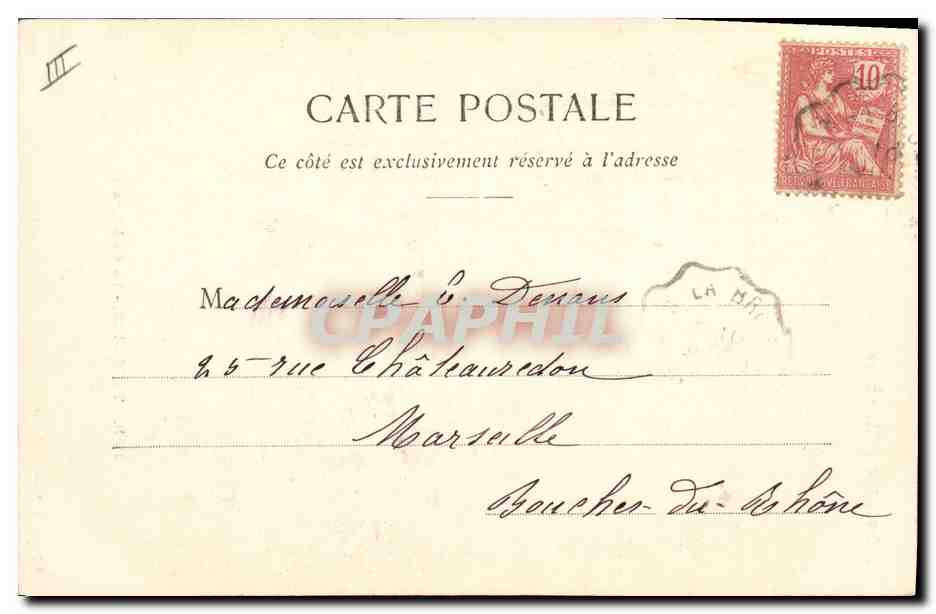 III
POSTES
10
CARTE POSTALE
Ce côté est exclusivement réservé à l'adresse
LA
Mademoiselle E. Denans
CPAPHIL
25 rue Châteauredon
Marseille
Bouches-du-Rhône